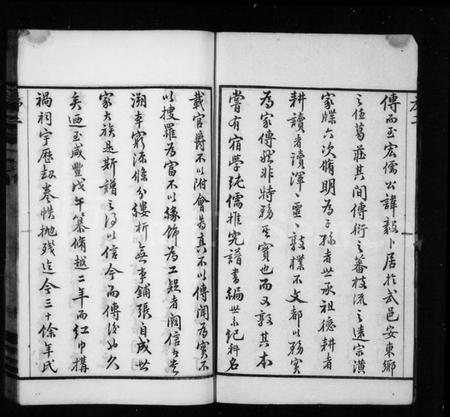 傳而至宏儒公諱毅卜居於武邑安東鄉
之伍葛莊其間傳衍之蕃枝流之遠宗潢
家牒六次脩明為子孫者世承祖德耕者
耕讀者讀渾渾噩噩敦樸不文都以務實
為家傳兢非特務其實也而又敦其本
嘗有宿學純儒推究譜書編世系紀科名
載官爵不以附會為真不以傳聞為實不
以搜羅為富不以緣飾為工疑者闕信者
溯本窮源條分縷析無事鋪張自成世
家大族是斯譜之得以信今而傳後也久
矣迺至咸豐戊午纂脩越二年而紅巾搆
禍祠宇歷劫卷帙拋殘迄今三十餘年氏